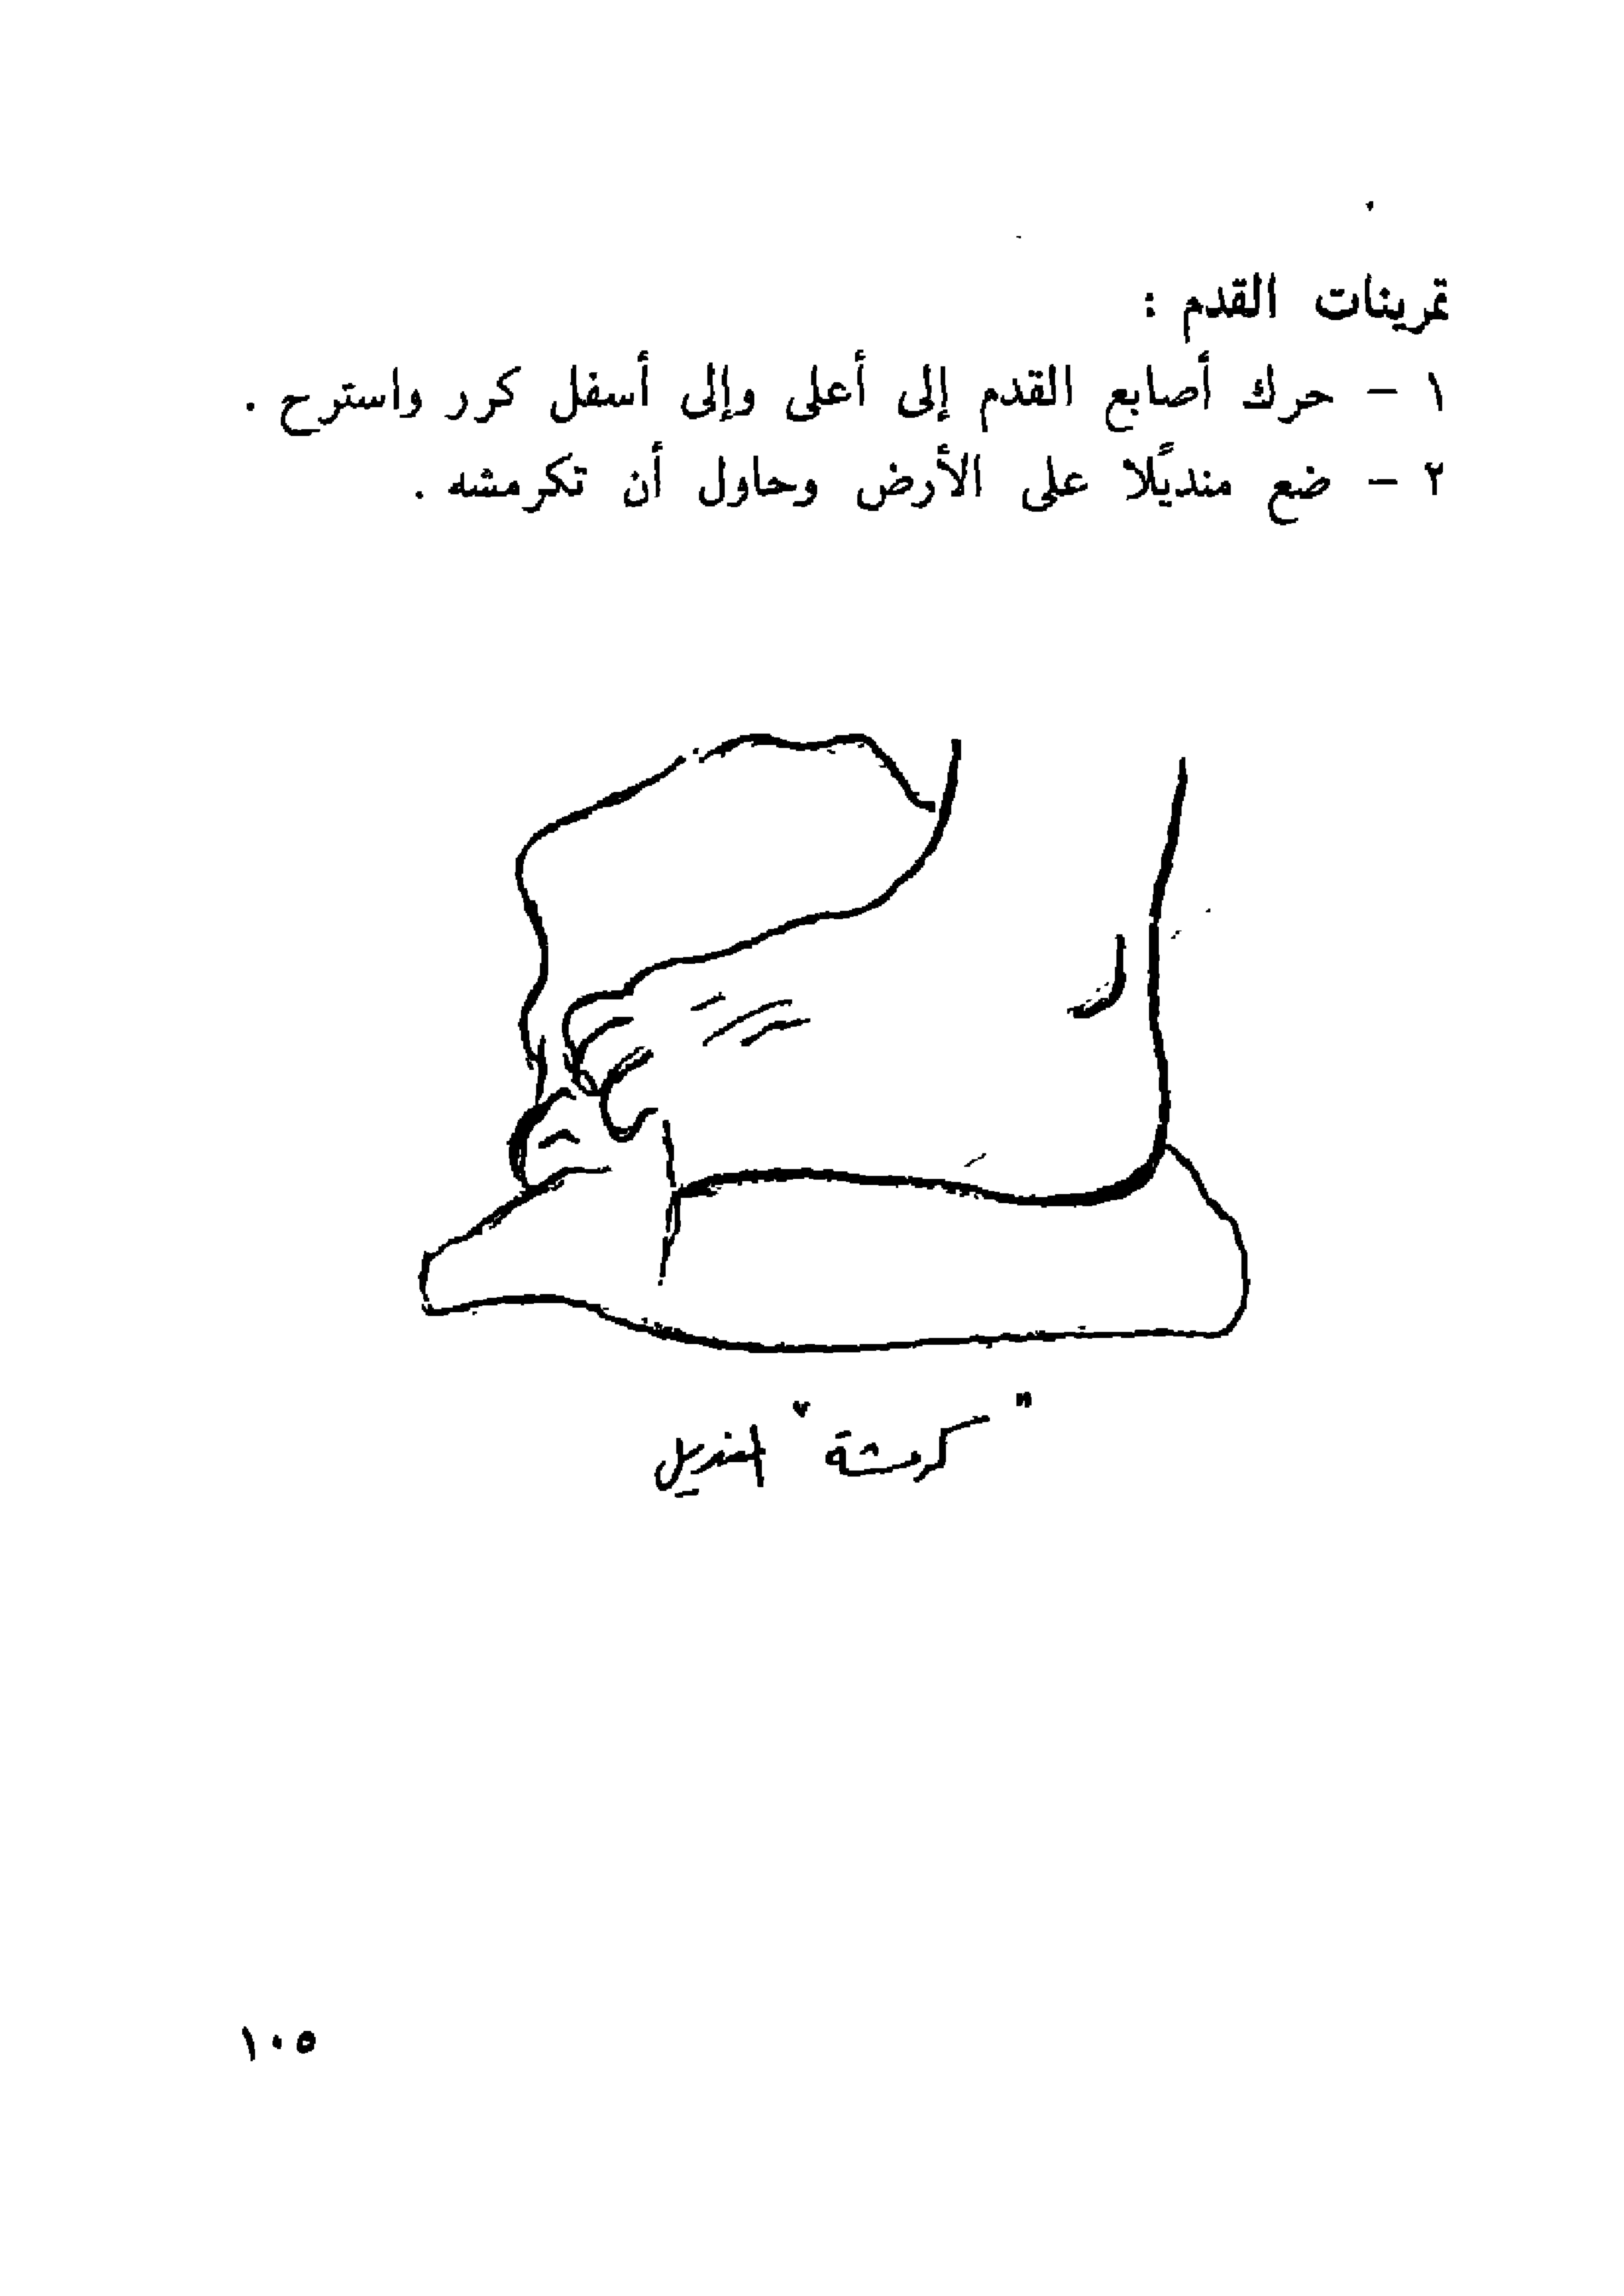 تمرينات القدم :
١ - حرك أصابع القدم إلى أعلى وإلى أسفل كرر واسترح .
٢ - ضع منديًلا على الأرض وحاول أن تكرمشه .
"كرمشة" المنديل
١٠٥